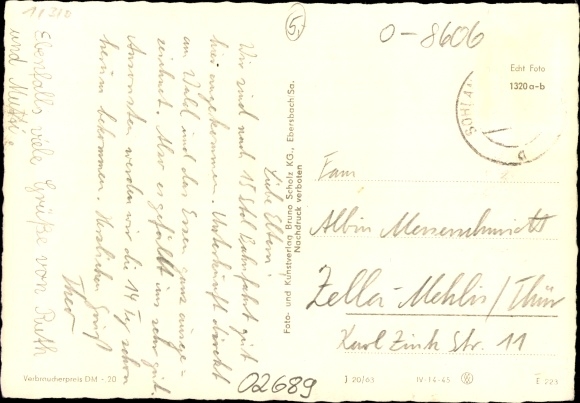 11/310
5,
0-8606
Echt Foto
1320 a-b
Liebe Eltern!
Wir sind nach 15 Std. Bahnfahrt gut
hier angekommen. Unterkunft direkt
am Wald und das Essen ganz ausge-
zeichnet. Also es gefällt uns sehr gut.
Ansonsten werden wir die 14 Tg schon
herum bekommen. Herzlichen Gruß
Theo
Ebenfalls viele Grüße von Ruth
und Mutti.
Foto- und Kunstverlag Bruno Scholz KG., Ebersbach/Sa.
Nachdruck verboten
Fam
Albin Messerschmidt
Zella-Mehlis/Thür
Karl Zink Str. 11
Verbraucherpreis DM -.20
02689
J 20/63 IV-14-45 E 223